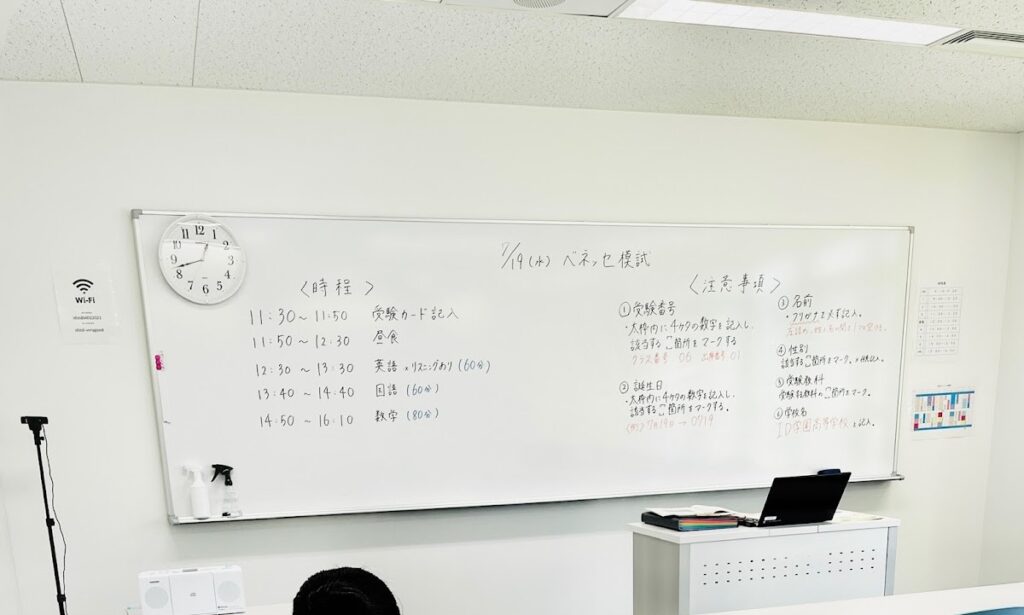 Wi-Fi
7/19(水) ベネッセ模試
〈時程〉
11:30〜11:50 受験カード記入
11:50〜12:30 昼食
12:30〜13:30 英語 ※リスニングあり (60分)
13:40〜14:40 国語 (60分)
14:50〜16:10 数学 (80分)
〈注意事項〉
①受験番号
・太枠内に4ケタの数字を記入し、
該当する 箇所をマークする
クラス番号 06 出席番号 01
②誕生日
・太枠内に4ケタの数字を記入し、
該当する 箇所をマークする。
(例)7月19日→0719
③名前
・フリガナも必ず記入。
④性別
該当する 箇所をマーク。
⑤受験教科
受験する教科の 箇所をマーク。
⑥学校名
ID学園高等学校 と記入。
12
1
2
3
4
5
6
7
8
9
10
11